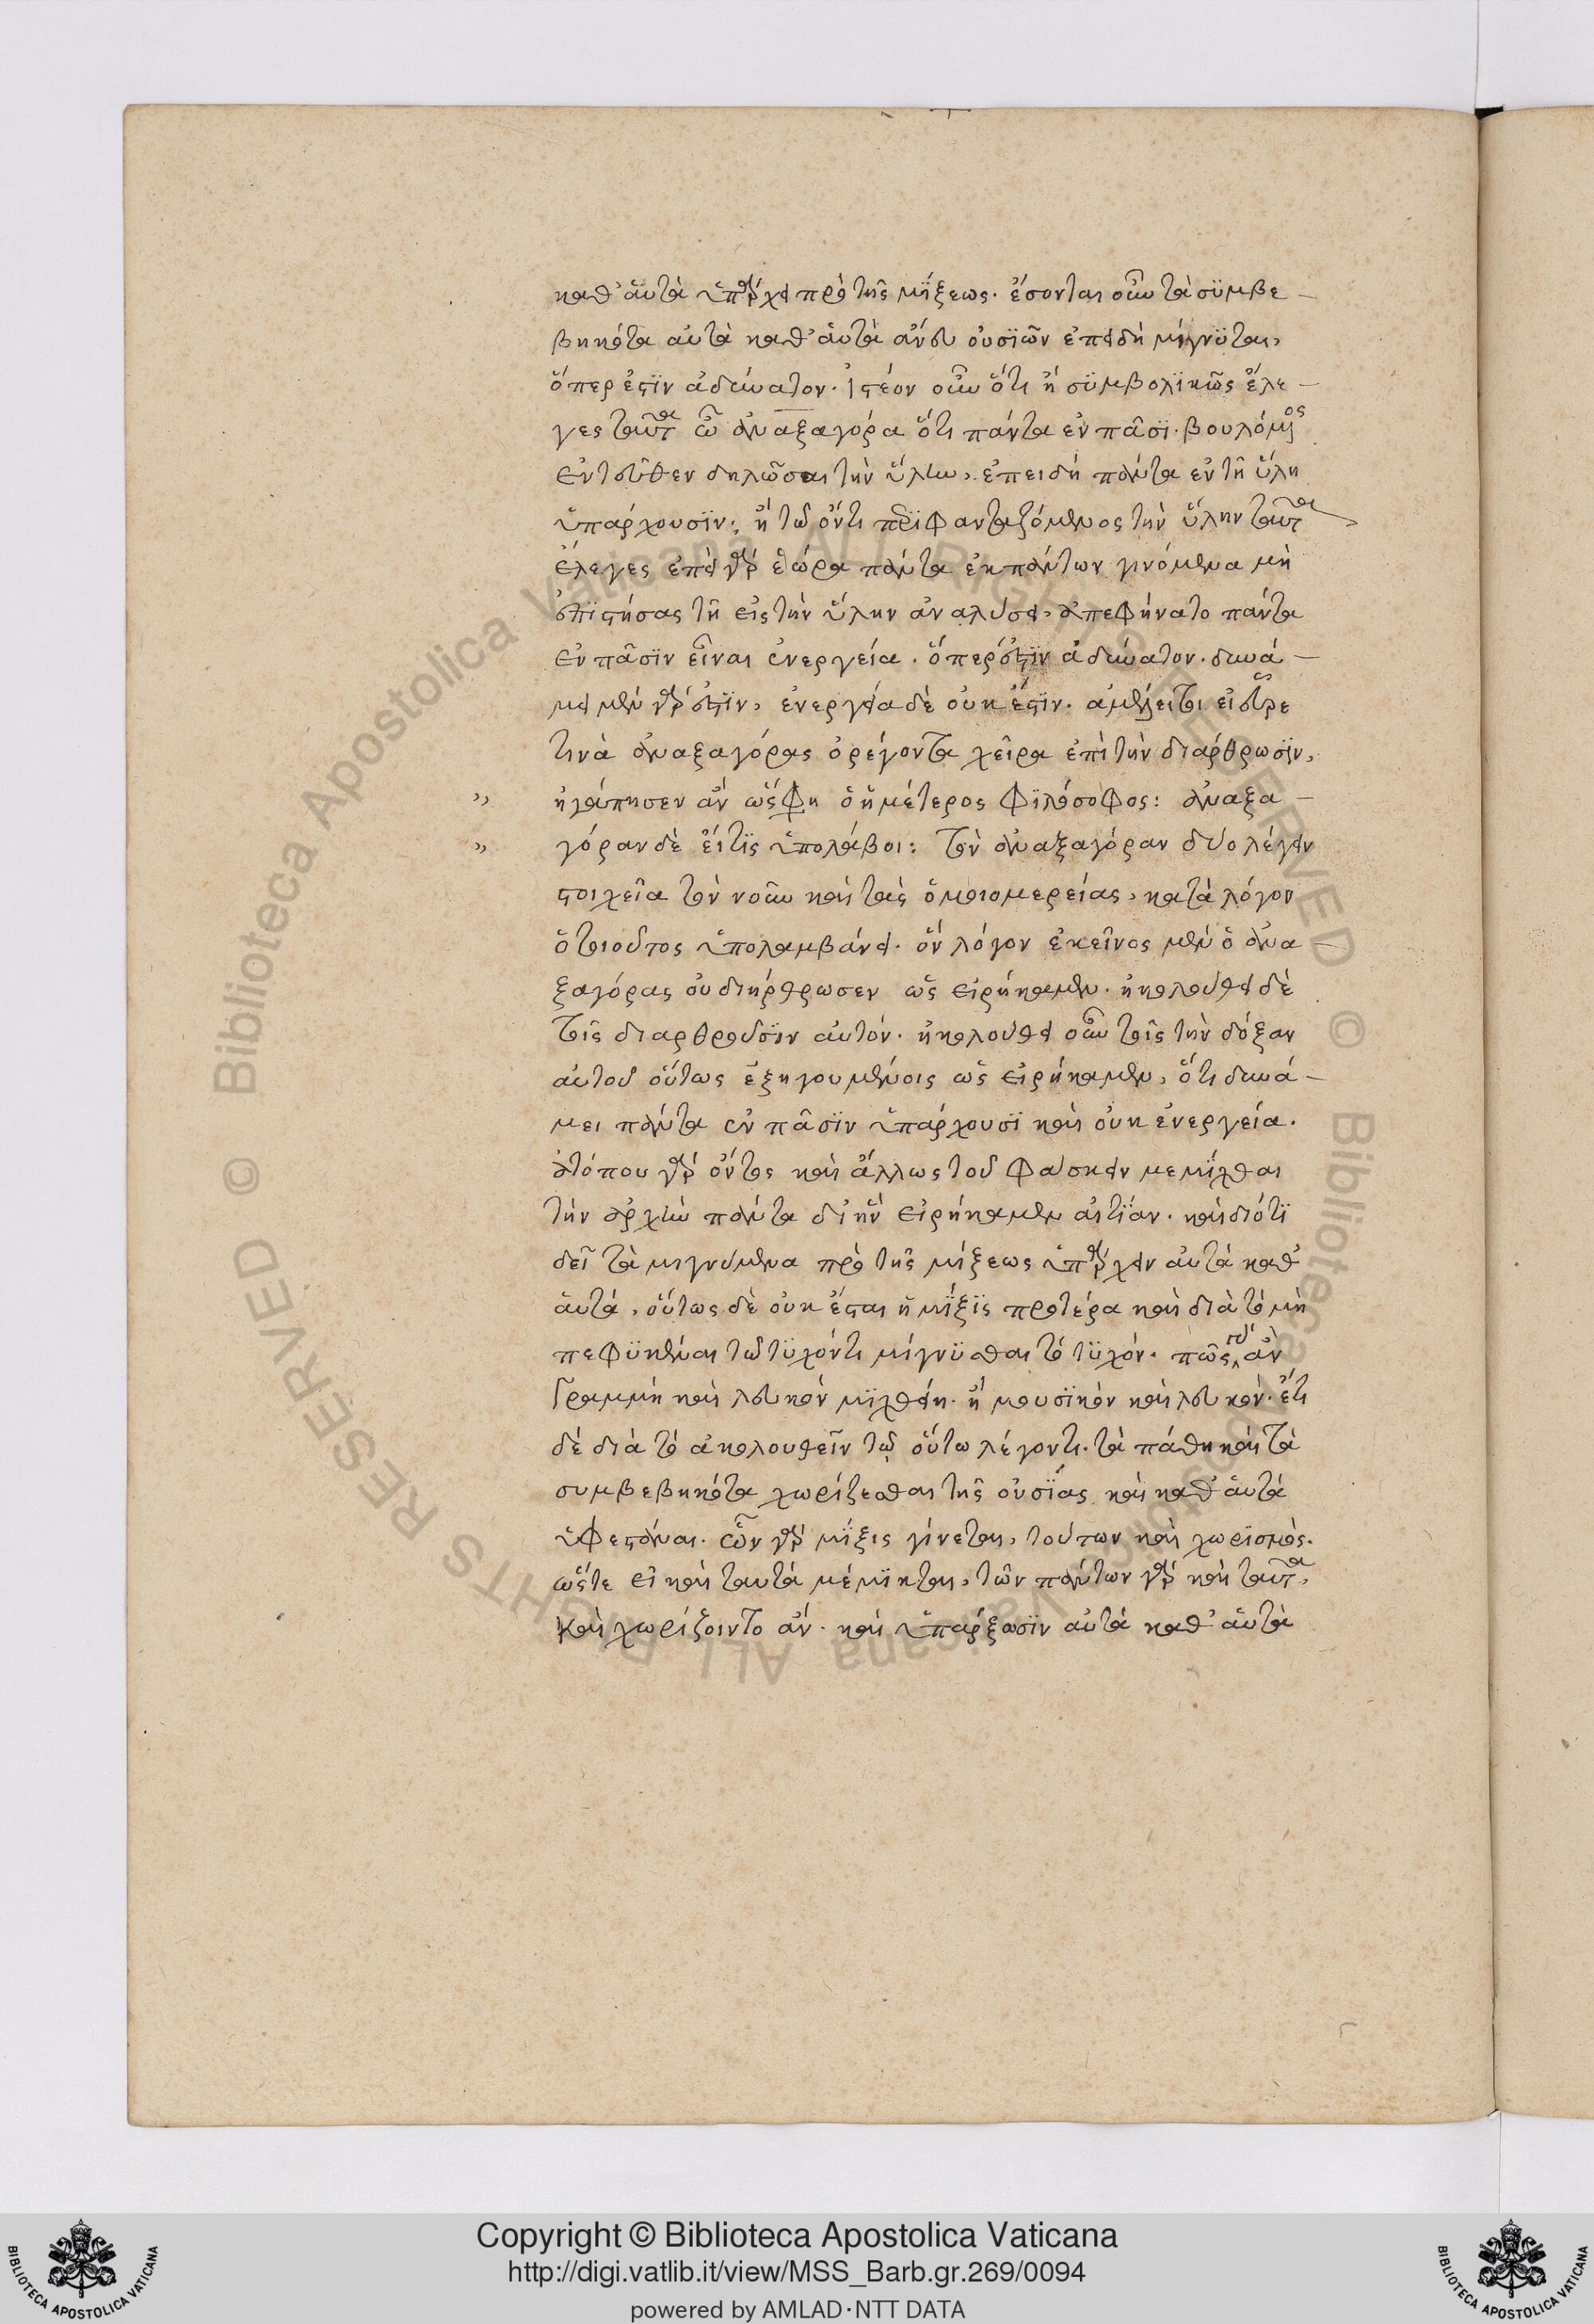 καθ' αὑτὰ ὑπάρχει πρὸ τῆς μίξεως. ἔσονται οὖν τὰ σϋμβε-
βηκότα αὐτὰ καθ' αὑτὰ ἄνευ οὐσϊῶν ἐπειδὴ μίγνϋται,
ὅπερ ἐστὶν ἀδύνατον. ἰστέον οὖν ὅτι ἢ σϋμβολϊκῶς ἔλε-
γες ταῦτα ὦ ἀναξαγόρα ὅτι πάντα ἐν πᾶσϊ. βουλόμενος
ἐντεῦθεν δηλῶσαι τὴν ὕλην, ἐπειδὴ πάντα ἐν τῇ ὕλῃ
ὑπάρχουσϊν. ἢ τῷ ὄντι περϊφανταζόμενος τὴν ὕλην ταῦτα
ἔλεγες ἐπεὶ γὰρ ἑώρα πάντα ἐκ πάντων γινόμενα μὴ
ἐπϊστήσας τῇ εἰς τὴν ὕλην ἀναλύσει, ἀπεφήνατο πάντα
ἐν πᾶσϊν εἶναι ἐνεργεία. ὅπερ ἐστϊν ἀδύνατον. δυνά-
μει μὲν γάρ ἐστϊν, ἐνεργεία δὲ οὐκ ἔστϊν. ἀμέλει τοι εἰ εὗρε
τινὰ ἀναξαγόρας ὀρέγοντα χεῖρα ἐπὶ τὴν διάρθρωσϊν,
" ἠγάπησεν ἂν ὥς φη ὁ ἡμέτερος φϊλόσοφος: ἀναξα-
" γόραν δὲ εἴ τϊς ὑπολάβοι: τὸν ἀναξαγόραν δύο λέγειν
στοιχεῖα τὸν νοῦν καὶ τὰς ὁμοιομερείας, κατὰ λόγον
ὁ τοιοῦτος ὑπολαμβάνει. ὃν λόγον ἐκεῖνος μὲν ὁ ἀνα-
ξαγόρας οὐ διήρθρωσεν ὡς εἰρήκαμεν. ἠκολούθει δὲ
τοῖς διαρθροῦσϊν αὐτόν. ἠκολούθει οὖν τοῖς τὴν δόξαν
αὐτοῦ οὕτως ἐξηγουμένοις ὡς εἰρήκαμεν, ὅτι δυνά-
μει πάντα ἐν πᾶσϊν ὑπάρχουσϊ καὶ οὐκ ἐνεργεία.
ἀτόπου γὰρ ὄντος καὶ ἄλλως τοῦ φάσκειν μεμῖχθαι
τὴν ἀρχὴν πάντα δι' ἣν εἰρήκαμεν αἰτϊαν. καὶ διότϊ
δεῖ τὰ μιγνύμενα πρὸ τῆς μίξεως ὑπάρχειν αὐτὰ καθ'
αὑτά, οὕτως δὲ οὐκ ἔσται ἡ μῖξϊς προτέρα καὶ διὰ τὸ μὴ
πεφϋκέναι τῷ τϋχόντι μίγνϋσθαι τὸ τϋχόν. πῶς γὰρ ἂν
Γραμμὴ καὶ λευκὸν μϊχθείη. ἢ μουσϊκὸν καὶ λευκόν. ἔτι
δὲ διὰ τὸ ἀκολουθεῖν τῷ οὕτω λέγοντι. τὰ πάθη καὶ τὰ
συμβεβηκότα χωρίζεσθαι τῆς οὐσϊας καὶ καθ' αὑτὰ
ὑφεστάναι. ὧν γὰρ μῖξις γίνεται, τούτων καὶ χωρϊσμός.
ὥστε εἰ καὶ ταυτὰ μέμϊκται, τῶν πάντων γὰρ καὶ ταῦτα,
καὶ χωρίζοιντο ἄν. καὶ ὑπάρξωσϊν αὐτὰ καθ' αὑτὰ
Copyright © Biblioteca Apostolica Vaticana
http://digi.vatlib.it/view/MSS_Barb.gr.269/0094
powered by AMLAD·NTT DATA
BIBLIOTECA APOSTOLICA VATICANA
BIBLIOTECA APOSTOLICA VATICANA
© Biblioteca Apostolica Vaticana ALL RIGHTS RESERVED © Biblioteca Apostolica Vaticana ALL RIGHTS RESERVED